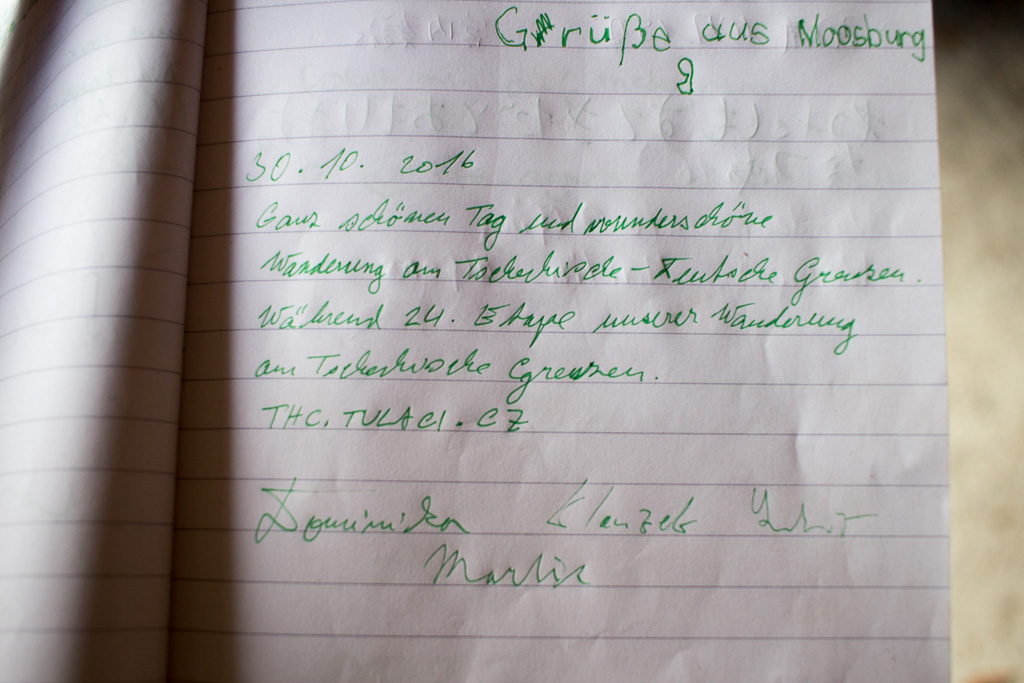 Grüße aus Moosburg
30.10. 2016
Ganz schönen Tag und wunderschöne
Wanderung am Tschechische-Deutsche Grenzen.
Während 24. Etape unserer Wanderung
am Tschechische Grenzen.
THC.TULACI.CZ
Dominika
Martin